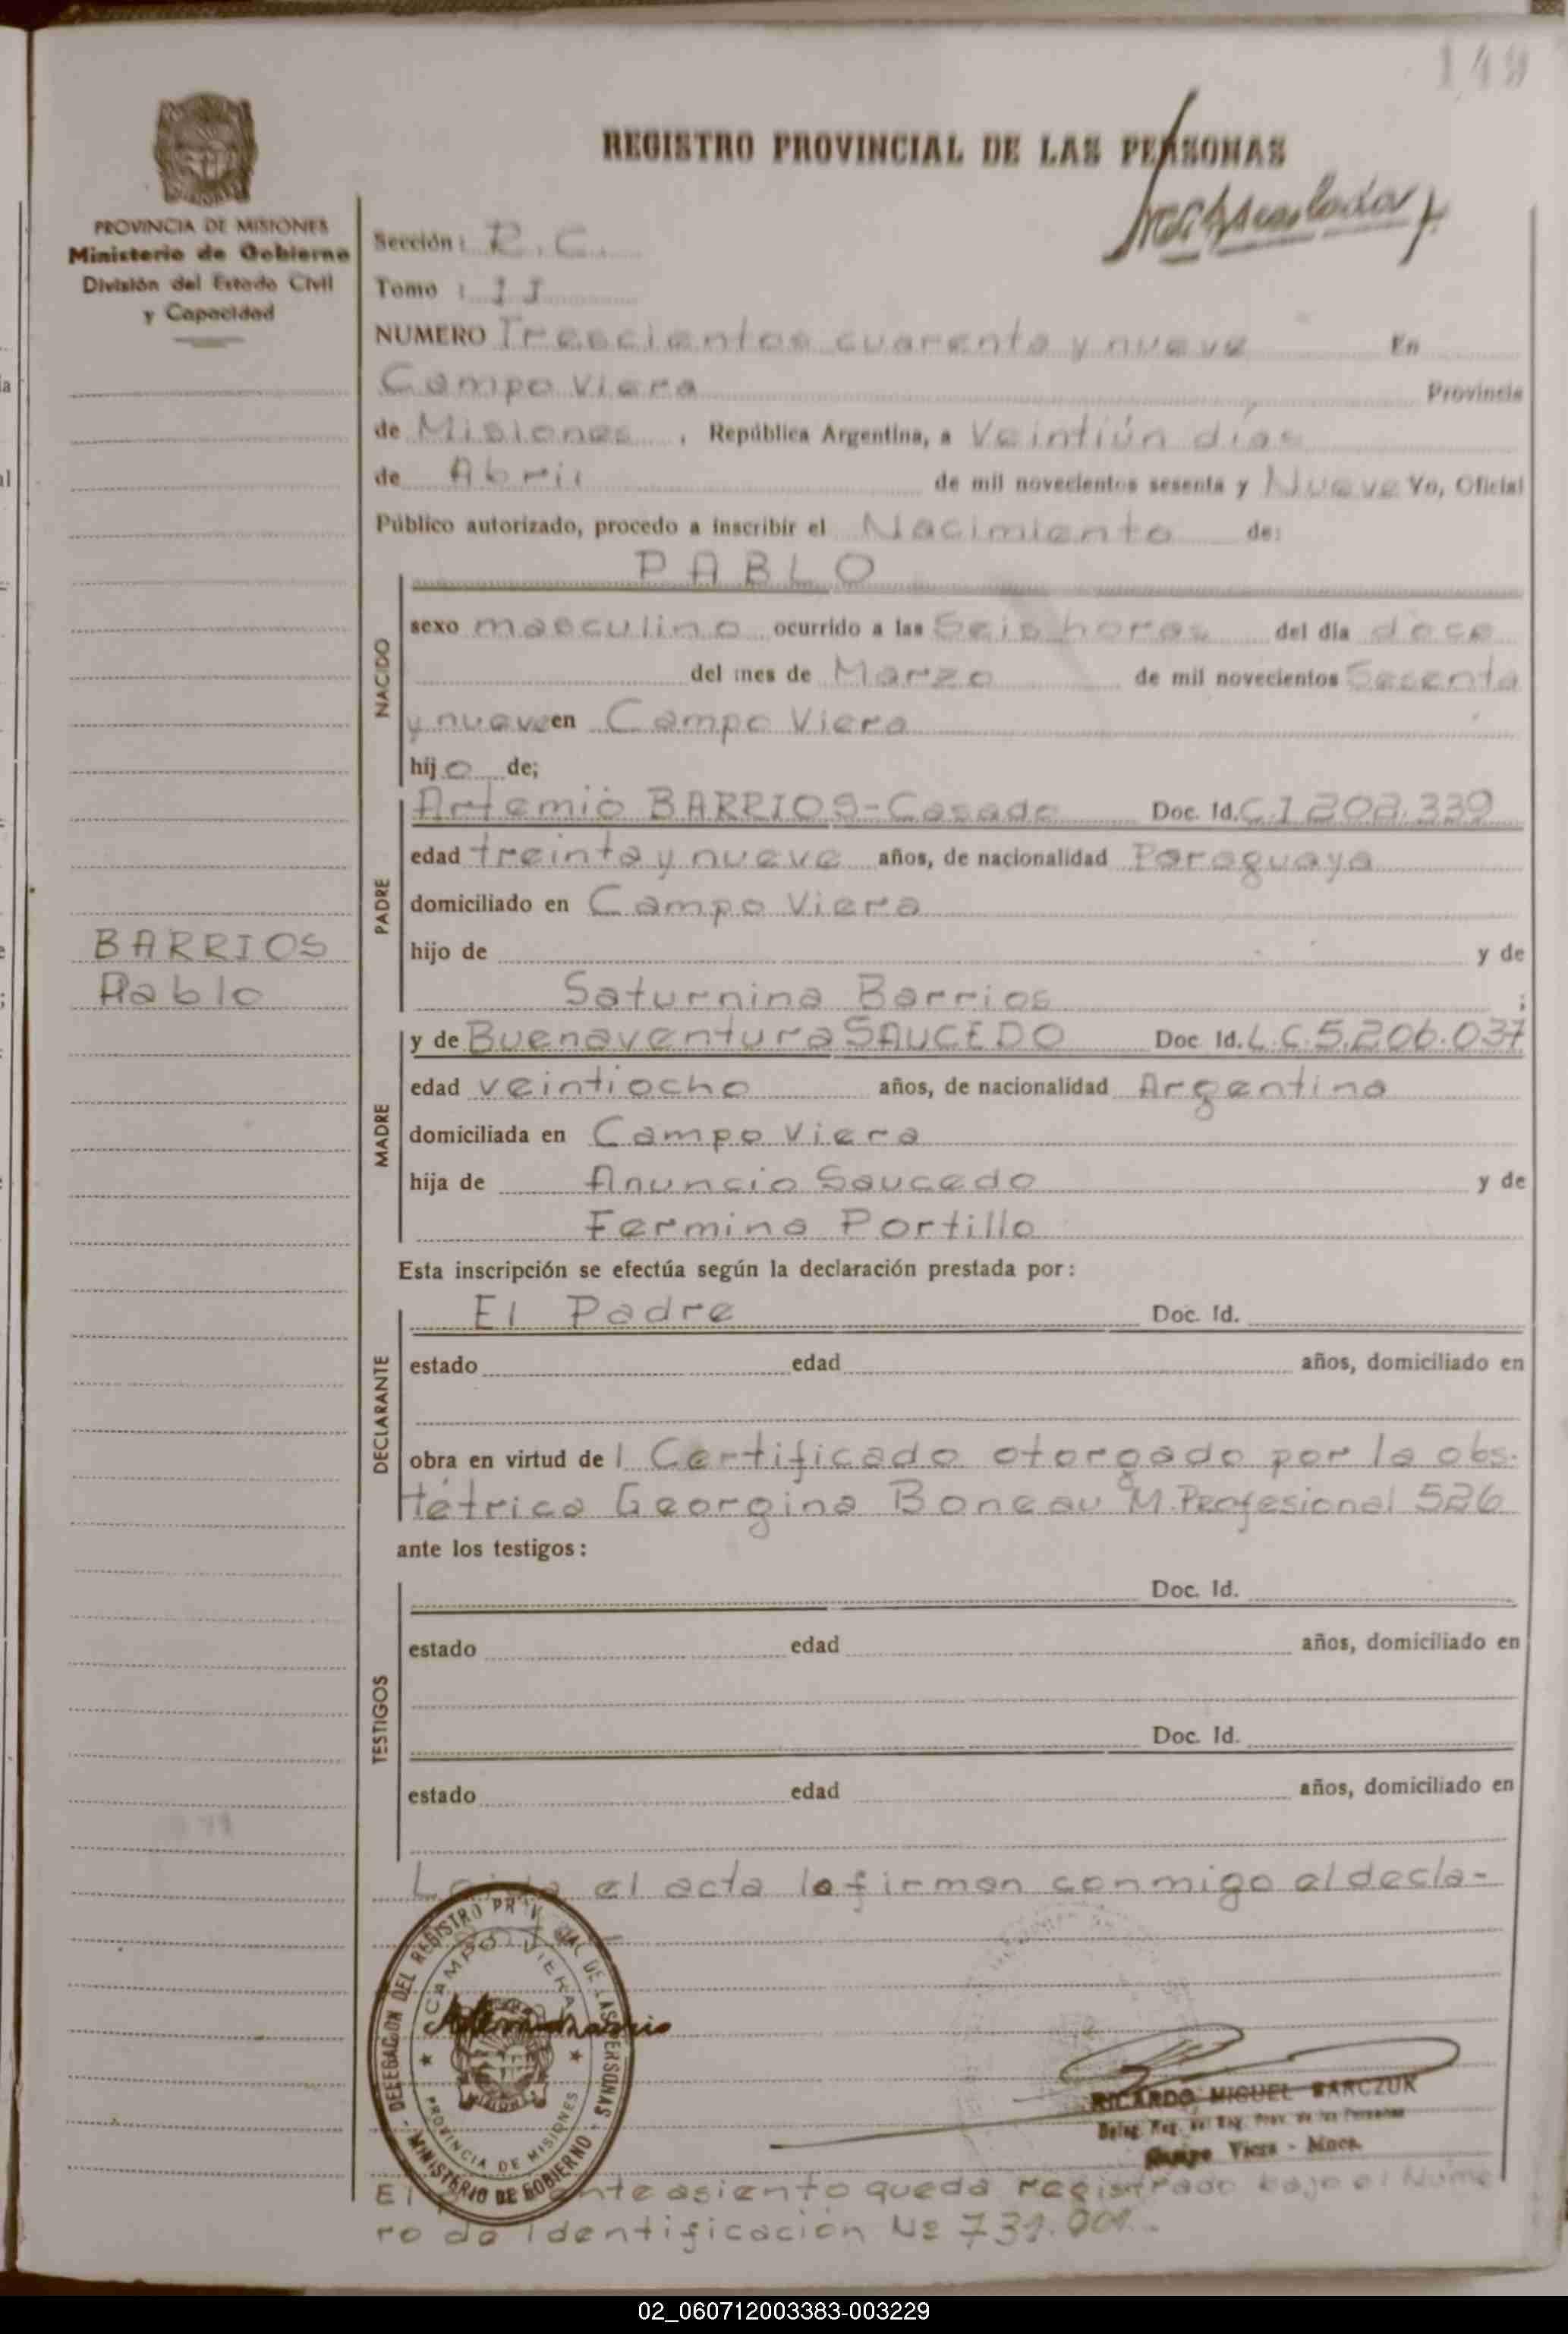 149
REGISTRO PROVINCIAL DE LAS PERSONAS
PROVINCIA DE MISIONES
Ministerio de Gobierno
División del Estado Civil
y Capacidad
Sección: R.C.
Tomo : II
NUMERO Trescientos cuarenta y nueve En
Campo Viera Provincia
de Misiones, República Argentina, a Veintiún días
de Abril de mil novecientos sesenta y Nueve Yo, Oficial
Público autorizado, procedo a inscribir el Nacimiento de:
NACIDO
PABLO
sexo masculino ocurrido a las Seis horas del día doce
del mes de Marzo de mil novecientos Sesenta
y nueve en Campo Viera
hijo de;
PADRE
Artemio BARRIOS-Casado Doc. Id. C.I 202.339
edad treinta y nueve años, de nacionalidad Paraguaya
domiciliado en Campo Viera
hijo de y de
Saturnina Barrios ;
BARRIOS
Pablo
MADRE
y de Buenaventura SAUCEDO Doc Id. L.C.5.206.037
edad veintiocho años, de nacionalidad Argentina
domiciliada en Campo Viera
hija de Anuncio Saucedo y de
Fermina Portillo
Esta inscripción se efectúa según la declaración prestada por:
DECLARANTE
El Padre Doc. Id.
estado edad años, domiciliado en
obra en virtud de l Certificado otorgado por la obs-
tétrica Georgina Boneau M. Profesional 526
ante los testigos:
TESTIGOS
Doc. Id.
estado edad años, domiciliado en
Doc. Id.
estado edad años, domiciliado en
el acta la firman conmigo el decla-
DELEGACION DEL REGISTRO PROVINCIAL DE LAS PERSONAS
CAMPO VIERA
PROVINCIA DE MISIONES
MINISTERIO DE GOBIERNO
RICARDO MIGUEL BARCZUK
Deleg. Reg. del Reg. Prov. de las Personas
Campo Viera - Mnes.
El asiento queda registrado bajo el Núme
ro de Identificación Nº 731.901.-
02_060712003383-003229